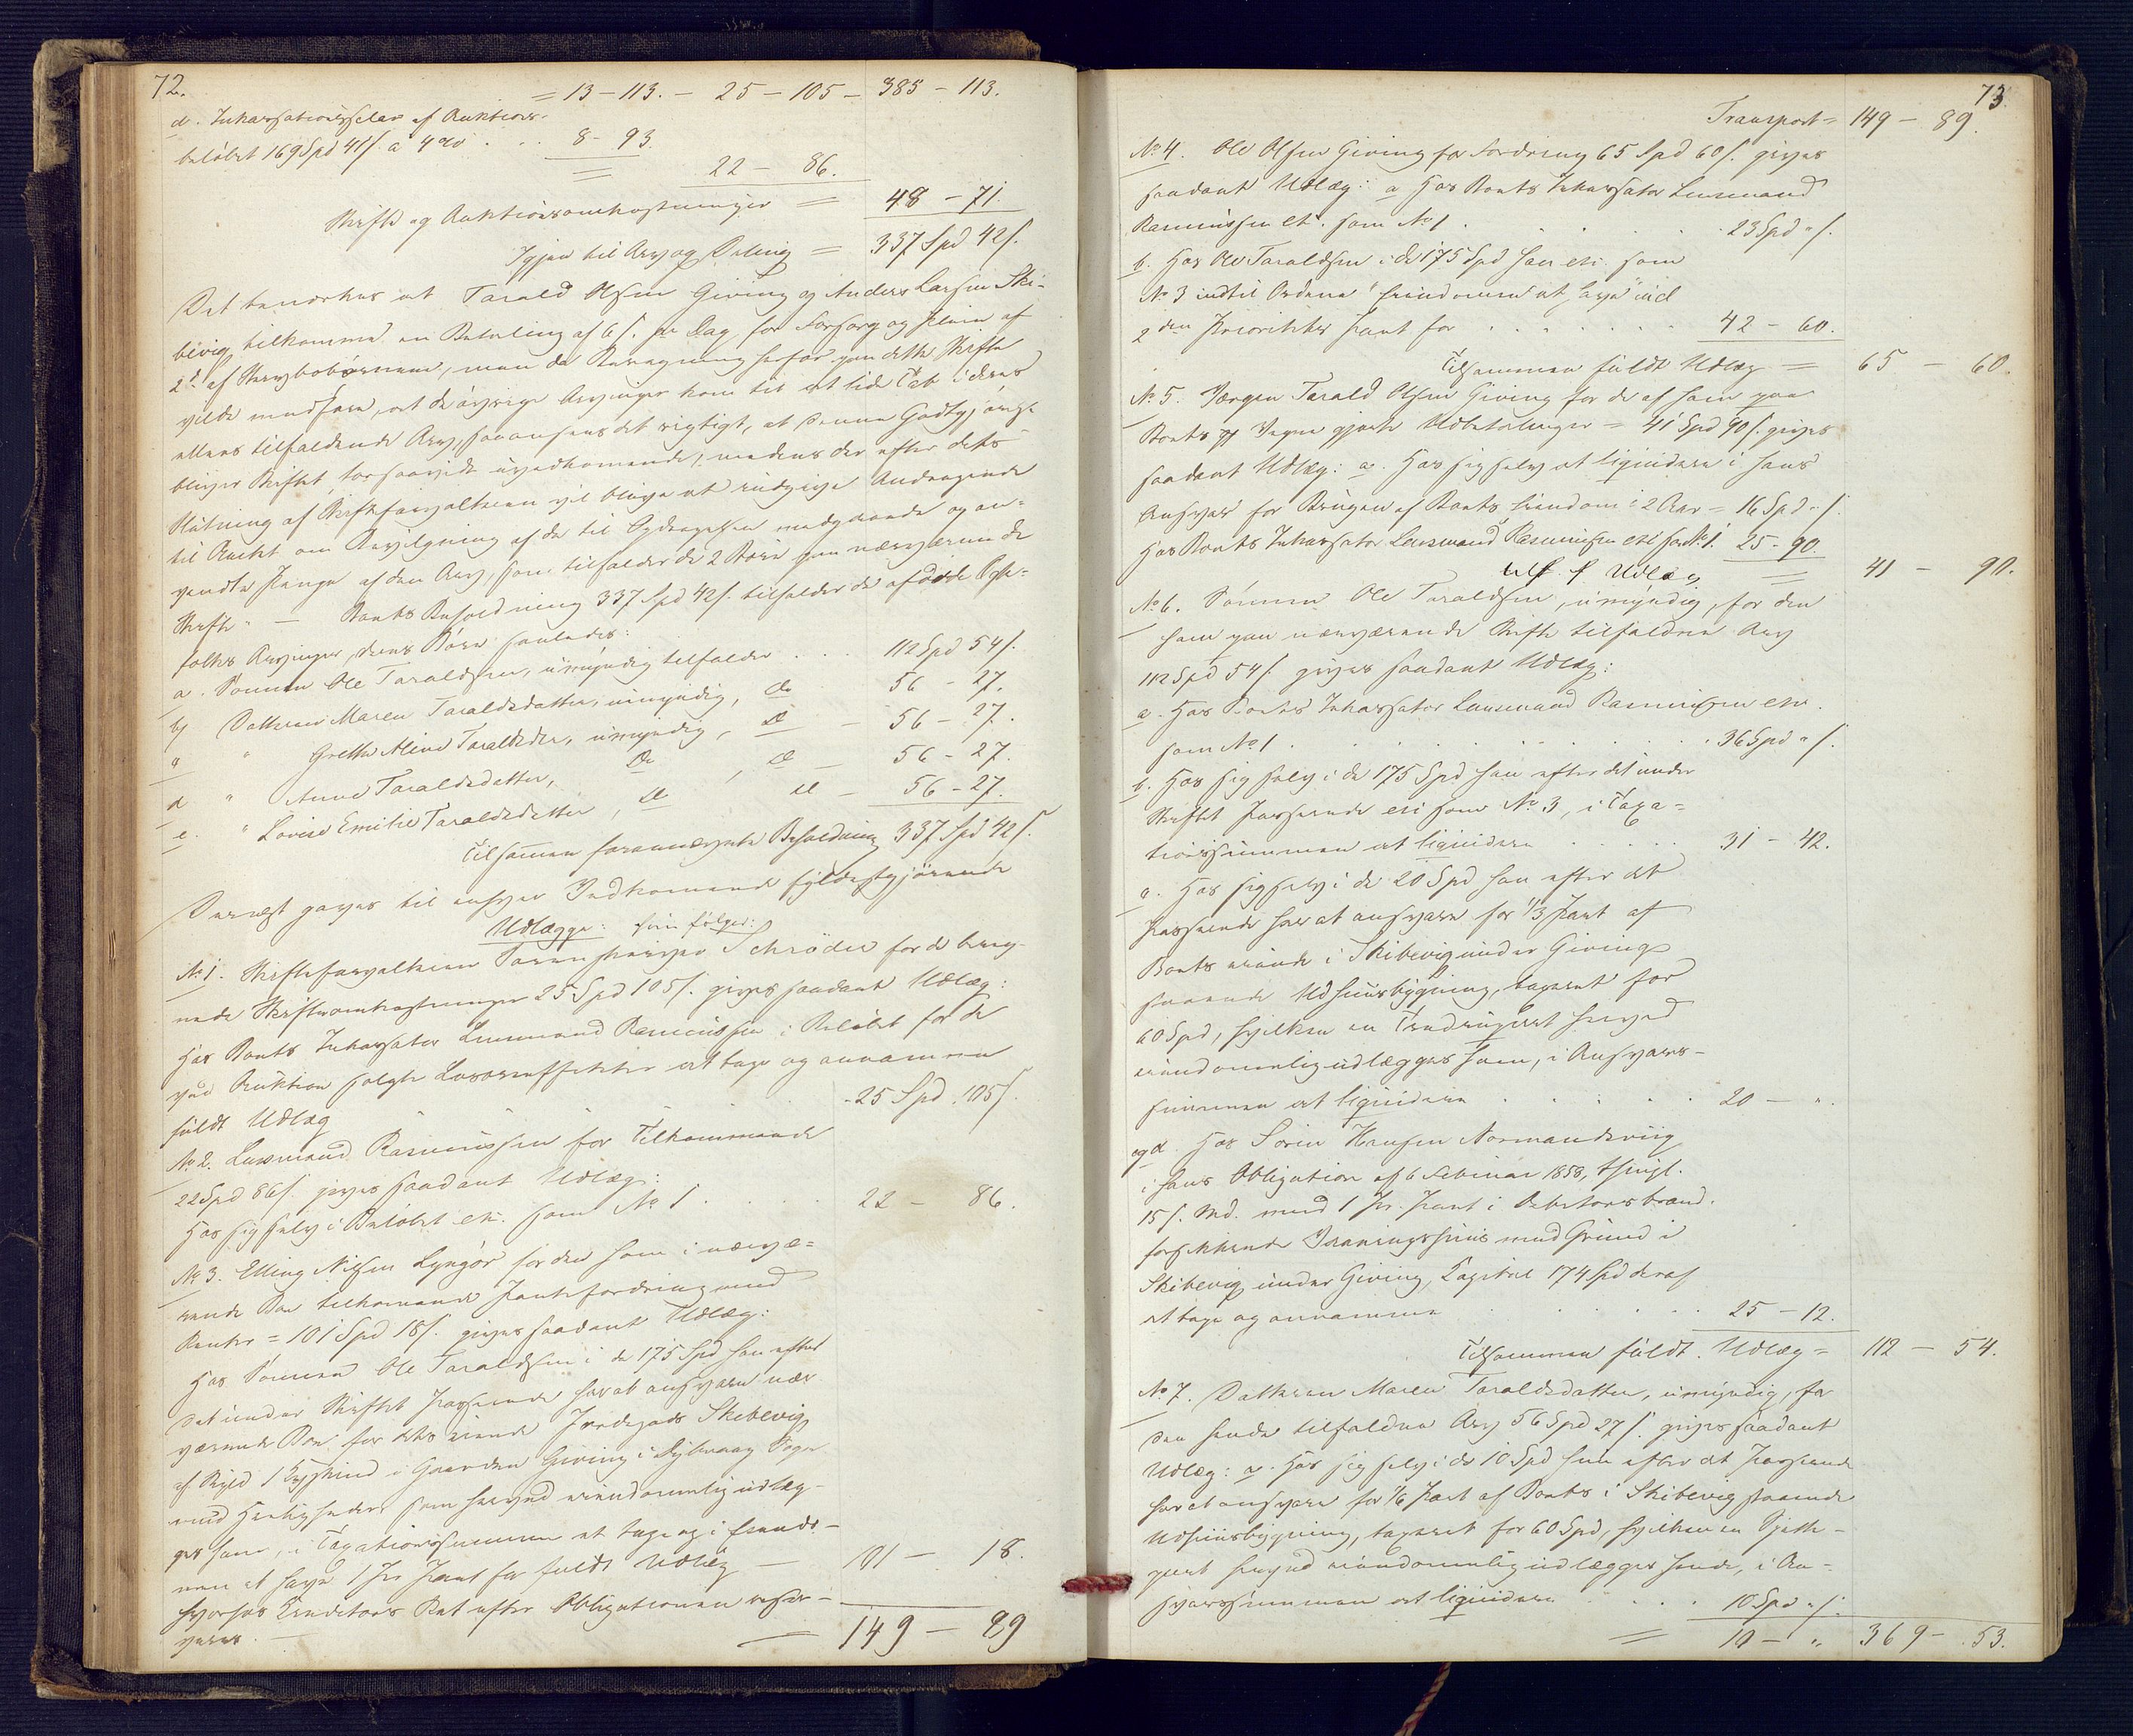 72.
= 13 – 113. – 25 – 105 – 385 – 113.
d. Inkassationssalær af Auktions-
beløbet 169 Spd 41 s. a 4 % . . . 8 – 93.
= 22 – 86.
Skifte og Auktionsomkostninger = 48 – 71.
Igjen til Arv og Deling = 337 Spd 42 s.
Det bemærkes at Tarald Olsen Giving og Anders Larsen Ski-
bevig tilkomme en Betaling af 6 s. pr Dag for Forsorg og Pleie af
2de af Stervbobørnene, men da Beregning herfor paa dette Skifte
vilde medføre, at de øvrige Arvinger kom til at lide Tab i deres
ellers tilfaldende Arv, saa ansees det rigtigt, at denne Godtgjørelse
bliver Skiftet forsaavidt uvedkommende, medens der efter dets
Slutning af Skifteforvalteren vil blive at indgive Andragende
til Amtet om Bevilgning af de til Opdragelsen medgaaede og an-
vendte Penge af den Arv, som tilfalder de 2 Børn paa nærværende
Skifte. – Boets Beholdning 337 Spd 42 s. tilfalder de afdøde Ægte-
folks Arvinger, deres Børn saaledes:
a. Sønnen Ole Taraldsen, umyndig tilfalder . . . 112 Spd 54 s.
b) Datteren Maren Taraldsdatter, umyndig, do 56 – 27.
c " Grethe Aline Taraldsdtr, umyndig, do – 56 – 27.
d " Anne Taraldsdatter, do, do – 56 – 27.
e. " Lovise Emilie Taraldsdatter, do do – 56 – 27.
Tilsammen forannævnte Beholdning 337 Spd 42 s.
Dernæst gaves til enhver Vedkommende fyldestgjørende
Udlægge: som følger:
No 1. Skifteforvalteren Sorenskriver Schrøder for de bereg-
nede Skifteomkostninger 25 Spd 105 s. gives saadant Udlæg:
Hos Boets Inkassator Lensmand Rasmussen i Beløbet for de
ved Auktion solgte Løsøreeffekter at tage og annamme
fuldt Udlæg . . 25 Spd 105 s.
No 2. Lensmand Rasmussen for Tilkommende
22 Spd 86 s. gives saadant Udlæg:
Hos sig selv i Beløbet etc. som No 1 . . . . 22 – 86.
No 3. Elling Nilsen Lyngør for den ham i nærvæ-
rende Bo tilkommende Pantefordring med
Renter = 101 Spd 18 s. gives saadant Udlæg:
Hos Sønnen Ole Taraldsen i de 175 Spd han efter
det under Skiftet Passerede har at ansvare nær
værende Bo for dets eiende Jordegods Skibevig
af Skyld 1 Kalvskind i Gaarden Giving i Dybvaag Sogn
med Herligheder som herved eiendommelig udlæg-
ges ham, i Taxationssummen at tage og i Eiendo-
men at have 1 Pr Pant for fuldt Udlæg – 101 – 18.
hvorhos Creditors Ret efter Obligationen reser-
veres. – = 149 – 89
73.
Transport = 149 – 89.
No 4. Ole Olsen Giving for Fordring 65 Spd 60 s. gives
saadant Udlæg: a Hos Boets Inkassator Lensmand
Rasmussen etc. som No 1 . . . . . 23 Spd " s.
b. Hos Ole Taraldsen i de 175 Spd han etc. som
No 3 indtil Ordene "Eiendommen at have" incl
2den Prioritets Pant for . . . . . . . 42 – 60.
Tilsammen fuldt Udlæg = 65 – 60.
No 5. Værgen Tarald Olsen Giving for de af ham paa
Boets Vegne gjorte Udbetalinger = 41 Spd 90 s. gives
saadant Udlæg: a. Hos sig selv at liqvidere i hans
Ansvar for Brugen af Boets Eiendom i 2 Aar = 16 Spd " s.
Hos Boets Inkassator Lensmand Rasmussen etc som No 1. 25 – 90.
Tils. f. Udlæg = 41 – 90.
No 6. Sønnen Ole Taraldsen, umyndig, for den
ham paa nærværende Skifte tilfaldne Arv
112 Spd 54 s. gives saadant Udlæg:
a. Hos Boets Inkassator Lensmand Rasmussen etc.
som No 1 . . . . . . . . . . 36 Spd " s.
b. Hos sig selv i de 175 Spd han efter det under
Skiftet Passerede etc som No 3, i Taxa-
tionssummen at liqvidere . . . . . 31 – 42.
c. Hos sig selv i de 20 Spd han efter det
Passerede har at ansvare for 1/3 Part af
Boets eiende i Skibevig under Giving
staaende Udhuusbygning, taxeret for
60 Spd, hvilken en Trediepart herved
eiendommelig udlægges ham, i Ansvars-
summen at liqvidere . . . . . . 20 – ".
og d. Hos Søren Hansen Normandsviig
i hans Obligation af 6 Februar 1858, thingl.
15 s. Md. med 1 Pr. Pant i Debitors brand-
forsikkrede Vaaningshuus med Grund i
Skibevig under Giving, Capital 174 Spd deraf
at tage og annamme . . . . . . 25 – 12.
Tilsammen fuldt Udlæg = 112 – 54.
No 7. Datteren Maren Taraldsdatter, umyndig, for
den hende tilfaldne Arv 56 Spd 27 s. gives saadant
Udlæg: a. Hos sig selv i de 10 Spd hun efter det Passerede
har at ansvare for 1/6 Part af Boets i Skibevig staaende
Udhuusbygning, taxeret for 60 Spd, hvilken en Sjette-
part herved eiendommelig udlægges hende, i An-
svarssummen at liqvidere . . . . 10 Spd " s.
= 10 – " 369 – 53.